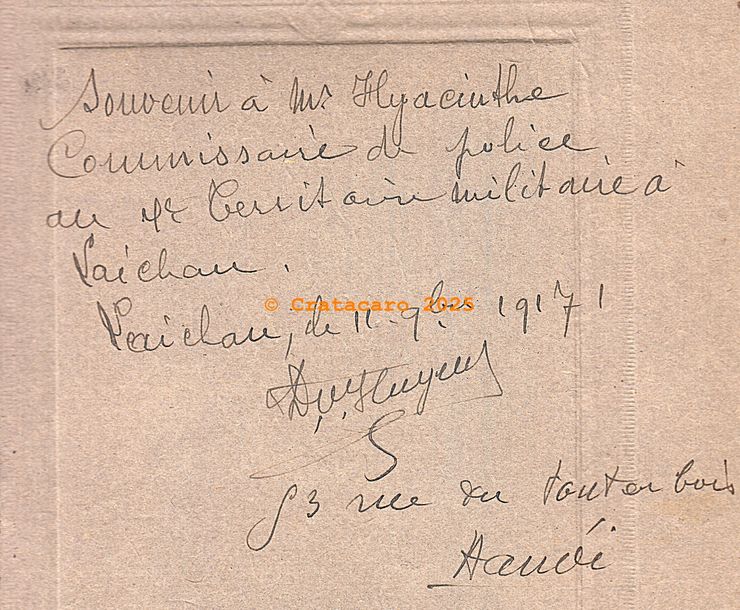 Souvenir à Mr Hyacinthe
Commissaire de police
au 4e Territoire militaire à
Laichau.
© Cratacaro 2025
Laichau, le 11 9bre 1917
53 rue du
Hanoï